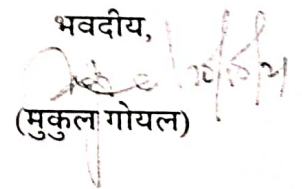 भवदीय,
(मुकुल गोयल)